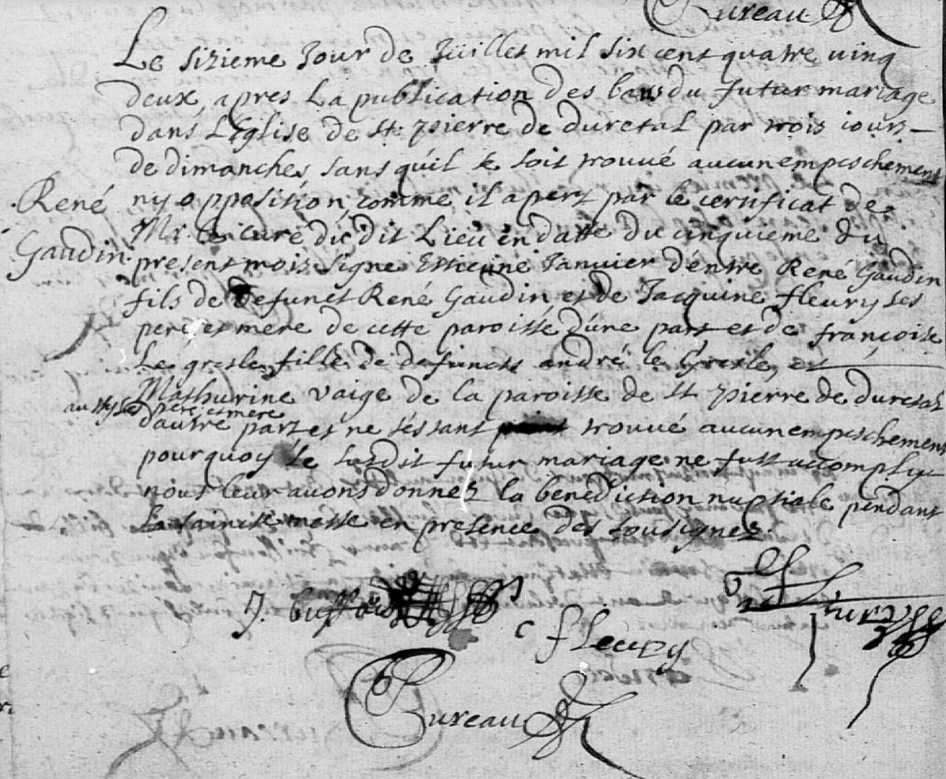 Bureau
Le sizieme Jour de Juillet mil six cent quatre uing
deux, apres La publication des bans du futur mariage
dans L'Eglise de st: pierre de duretal par trois iours
de dimanches sans qu'il se soit trouué aucun empeschement
René
ny opposition, comme il apert par le certificat de
Mr le curé du dit Lieu en datte du cinquieme du
Gaudin
present mois signe Estienne Januier d'entre René Gaudin
fils de defunct René Gaudin et de Jacquine fleury ses
pere et mere de cette paroisse d'une part et de françoise
Le gresle, fille de defuncts andré le Gresle, et
Mathurine vaige de la paroisse de st pierre de duretal
aussy ses pere et mere
d'autre part et ne s'estant trouué aucun empeschement
pourquoy le susdit futur mariage ne fust accomply
nous leur auons donnez la benediction nuptiale pendant
La saincte messe en presence des sousignez.
J.
c fleury
Bureau